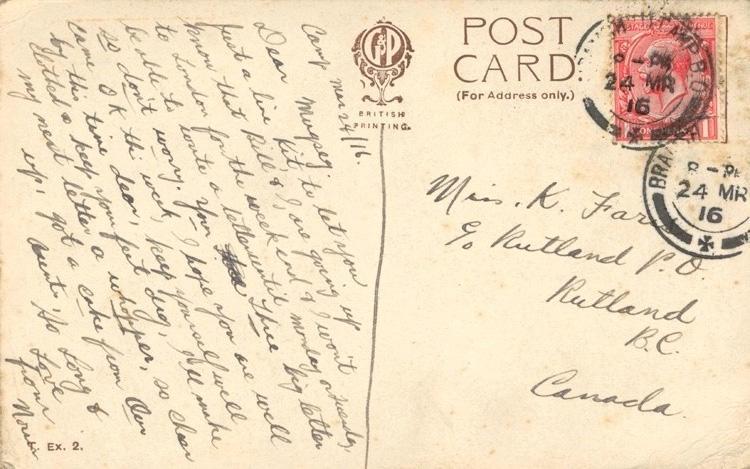 POST
CARD.
(For Address only.)
BRITISH
PRINTING.
8 - PM
24 MR
16
8 - PM
24 MR
16
Camp Mar 24/16.
Dear Mugsey
Just a line Kit to let you
know that Bill & I are going up
to London for the week end & I won't
be able to write a letter until monday or tuesday,
so don't worry. Your big letter
came OK this week, I hope you are well
by this time dear, keep yourself well
& keep your feet dry, I'll make
my next letter a whopper, so cheer
up, got a cake from Our
Aunt. So Long &
Love
from
Miss. K. Farr
c/o Rutland P.O.
Rutland
B.C.
Canada.
Ex. 2.